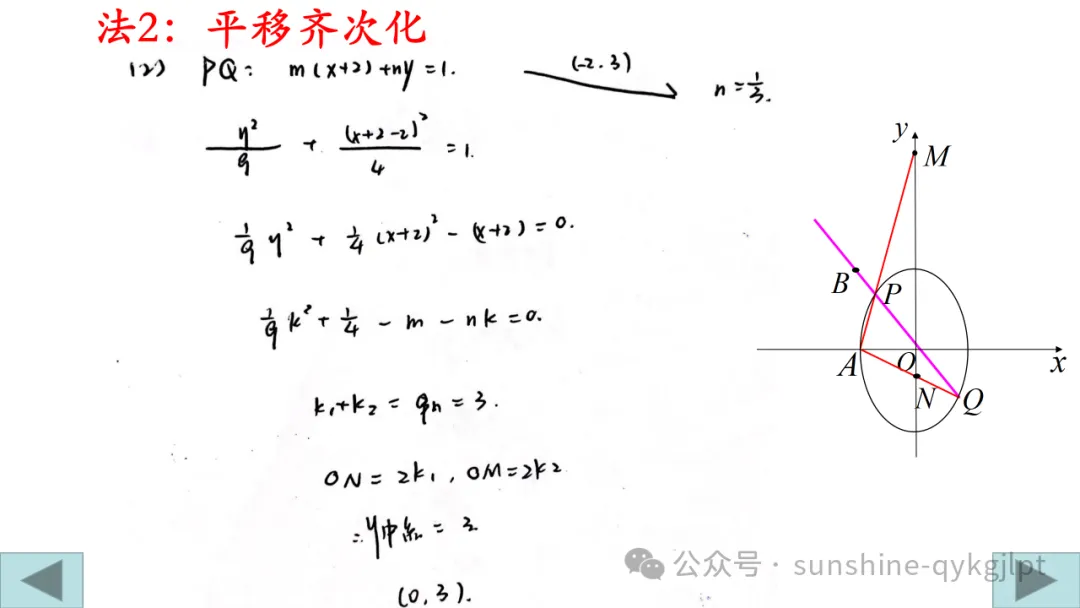 法2：平移齐次化
(2) PQ: m(x+2)+ny=1. (-2.3) n=1/3.
y²/9 + (x+2-2)²/4 =1.
1/9 y² + 1/4 (x+2)² - (x+2) =0.
1/9 k² + 1/4 - m - nk =0.
k₁+k₂ = 9n = 3.
ON = 2k₁, OM=2k₂
∴y中点 = 3
(0,3).
y
M
B
P
A
O
x
N
Q
公众号 · sunshine-qykgjlpt